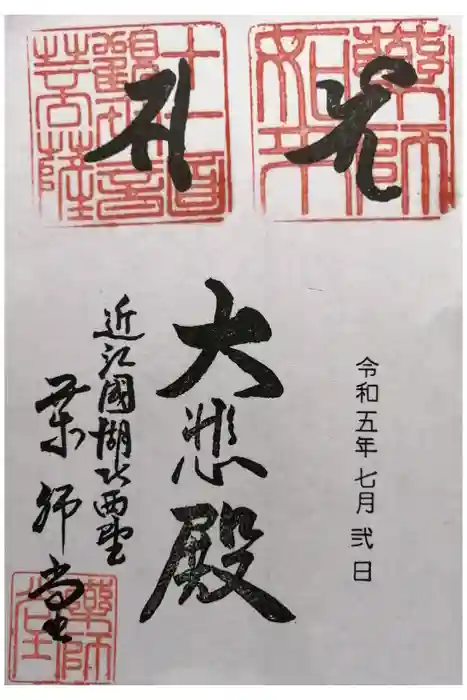 藥師
如来
十一面
觀世音
菩薩
令和五年七月弐日
大悲殿
近江國湖北西埜
薬師堂
藥師
堂